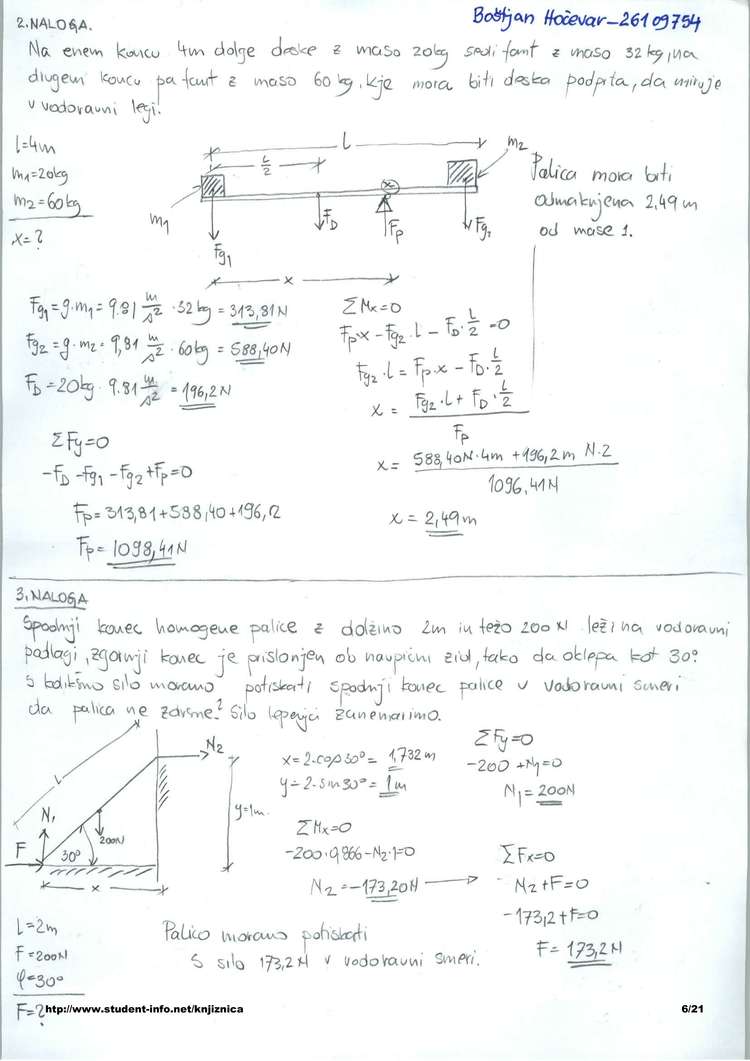 Boštjan Hočevar-26109754
2.NALOGA.
Na enem koncu 4m dolge deske z maso 20kg sedi fant z maso 32kg, na
drugem koncu pa fant z maso 60kg. Kje mora biti deska podprta, da miruje
v vodoravni legi.
l=4m
m1=20kg
m2=60kg
x=?
L
L/2
m2
m1
FD
Fp
Fg2
Fg1
x
Palica mora biti
odmaknjena 2,49m
od mase 1.
Fg1=g·m1=9.81 m/s² ·32kg=313,81N
Fg2=g·m2=9,81 m/s² ·60kg=588,40N
FD=20kg·9.81 m/s² =196,2N
ΣFy=0
-FD-Fg1-Fg2+Fp=0
Fp=313,81+588,40+196,2
Fp=1098,41N
ΣMx=0
Fp·x-Fg2·l-FD·L/2=0
Fg2·l=Fp·x-FD·L/2
x= Fg2·L+FD·L/2
Fp
x= 588,40N·4m+196,2m N·2
1096,41N
x=2,49m
3.NALOGA
Spodnji konec homogene palice z dolžino 2m in težo 200N leži na vodoravni
podlagi, zgornji konec je prislonjen ob navpični zid, tako da oklepa kot 30°.
S kolikšno silo moramo potiskati spodnji konec palice v vodoravni smeri
da palica ne zdrsne? Silo lepenja zanemarimo.
L
N2
N1
F
200N
30°
y=1m
x
x=2·cos30°=1,732m
y=2·sin30°=1m
ΣMx=0
-200·0,866-N2·1=0
N2=-173,20N
ΣFy=0
-200+N1=0
N1=200N
ΣFx=0
N2+F=0
-173,2+F=0
F=173,2N
L=2m
F=200N
φ=30°
F=?
Palico moramo potiskati
s silo 173,2N v vodoravni smeri.
http://www.student-info.net/knjiznica
6/21